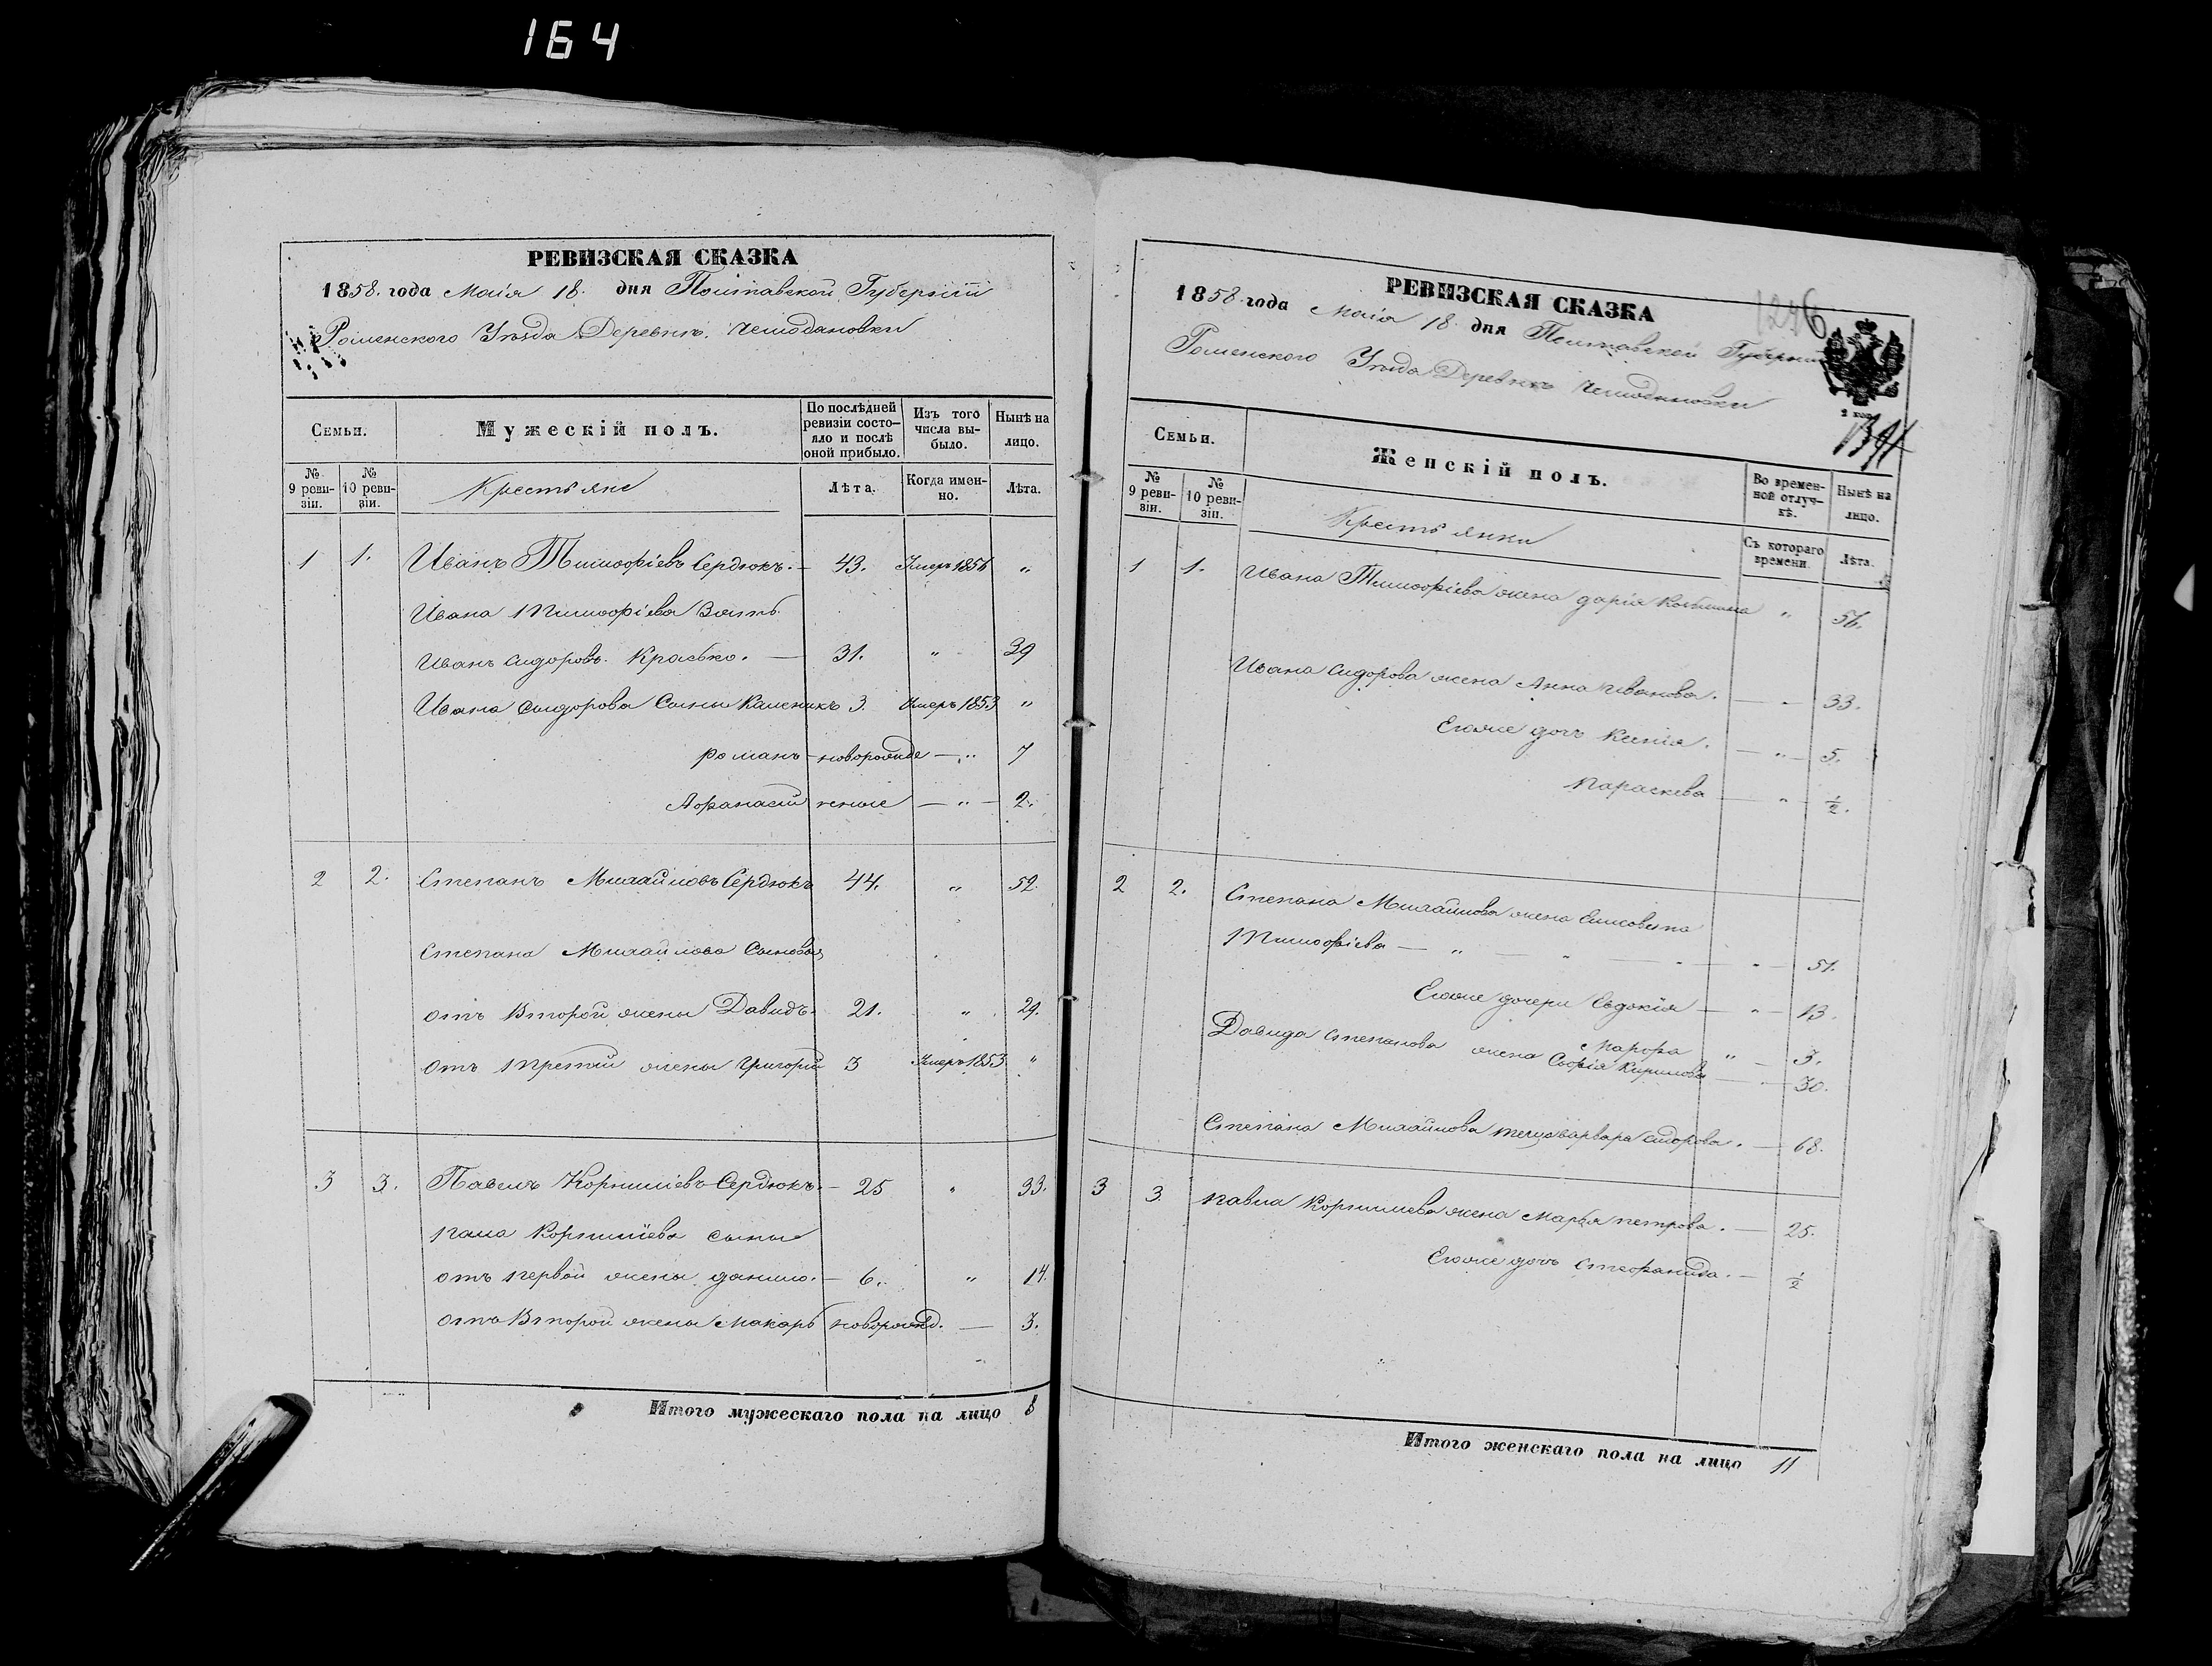 164
РЕВИЗСКАЯ СКАЗКА
1858. года Маія 18. дня Полтавской Губерніи
Роменского Уѣзда Деревни. Чемодановки
Семьи. Мужескій полъ. По послѣдней ревизіи состояло и послѣ оной прибыло. Изъ того числа выбыло. Нынѣ на лицо.
№ 9 ревизіи. № 10 ревизіи. Крестьяне Лѣта. Когда именно. Лѣта.
1 1. Иванъ Тимофіевъ Сердюкъ. — 43. Умеръ 1856 "
Ивана Тимофіева Зять
Иванъ Сидоровъ. Красько. — 31. " 39
Ивана Сыдорова Сыны Каленикъ 3. Умеръ 1853 "
Романъ — новорожде — " 7
Афанасій нные — " — 2.
2 2. Степанъ Михайловъ Сердюкъ 44. " 52.
Степана Михайлова Сыновья
отъ Второй жены Давидъ. 21. " 29.
отъ Третей жены Григорій 3 Умеръ 1853 "
3 3. Павелъ Корнилиевъ Сердюкъ. — 25 " 33.
Павла Корнилиева сыны
отъ первой жены данило. — 6. " 14.
отъ Второй жены Макаръ новорожд. — 3.
Итого мужескаго пола на лицо 8
РЕВИЗСКАЯ СКАЗКА 1246
1858. года Маія 18. дня Полтавской Губерніи
Роменского Уѣзда Деревни Чемодановки
Семьи. Женскій полъ. Во временной отлучкѣ. Нынѣ на лицо.
№ 9 ревизіи. № 10 ревизіи. Крестьянки Съ котораго времени. Лѣта.
1 1. Ивана Тимофіева жена дарія " 56.
Ивана Сидорова жена Анна Иванова. — " 33.
Егоже дочь Ксенія. — " — 5.
Параскева — " — ½.
2 2. Степана Михайлова жена
Тимофіева — " — " — " — 51.
Егоже дочери Евдокія — " — 13.
Марфа " — 3.
Давида Степанова жена Софія Кирилова — 30.
Степана Михайлова теща варвара сидорова. — 68.
3 3. Павла Корнилиева жена Марья петрова. — 25.
Егоже дочь Стефанида. — ½
Итого женскаго пола на лицо 11